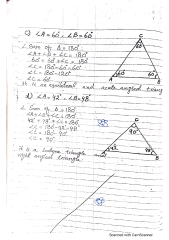 c) ∠A = 60°, ∠B = 60°
∠ Sum of Δ = 180°
∠A + ∠B + ∠C = 180°
60° + 60° + ∠C = 180°
∠C = 180° - 60° - 60°
∠C = 180° - 120°
∠C = 60°
It is an equilateral and acute angled triang
C
60°
60°
60°
A
B
d) ∠A = 42°, ∠B = 48°
∠ Sum of Δ = 180°
∠A + ∠B + ∠C = 180°
42° + 48° + ∠C = 180°
∠C = 180° - 42° - 48°
∠C = 180° - 90°
∠C = 90°
It is a Scalene triangle
right angled triangle.
C
90°
42°
48°
A
B
Scanned with CamScanner